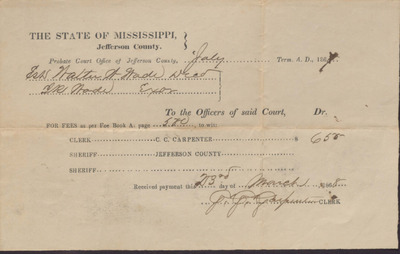 THE STATE OF MISSISSIPPI,
Jefferson County.
Probate Court Office of Jefferson County, July Term, A. D., 186
Walter W. Wade Decd
Wade Exor
To the Officers of said Court, Dr.
FOR FEES as per Fee Book A, page to wit:
CLERK C. C. CARPENTER $ 6
SHERIFF JEFFERSON COUNTY
SHERIFF
Received payment this 23rd day of March 186
CLERK